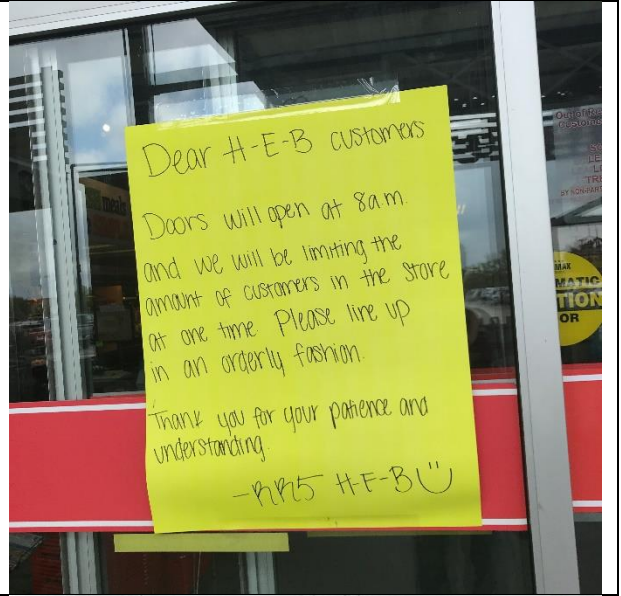 Dear H-E-B customers
Doors will open at 8am.
and we will be limiting the
amount of customers in the store
at one time. Please line up
in an orderly fashion.
Thank you for your patience and
understanding.
-RR5 H-E-B
meals
MATIC
TION
OR